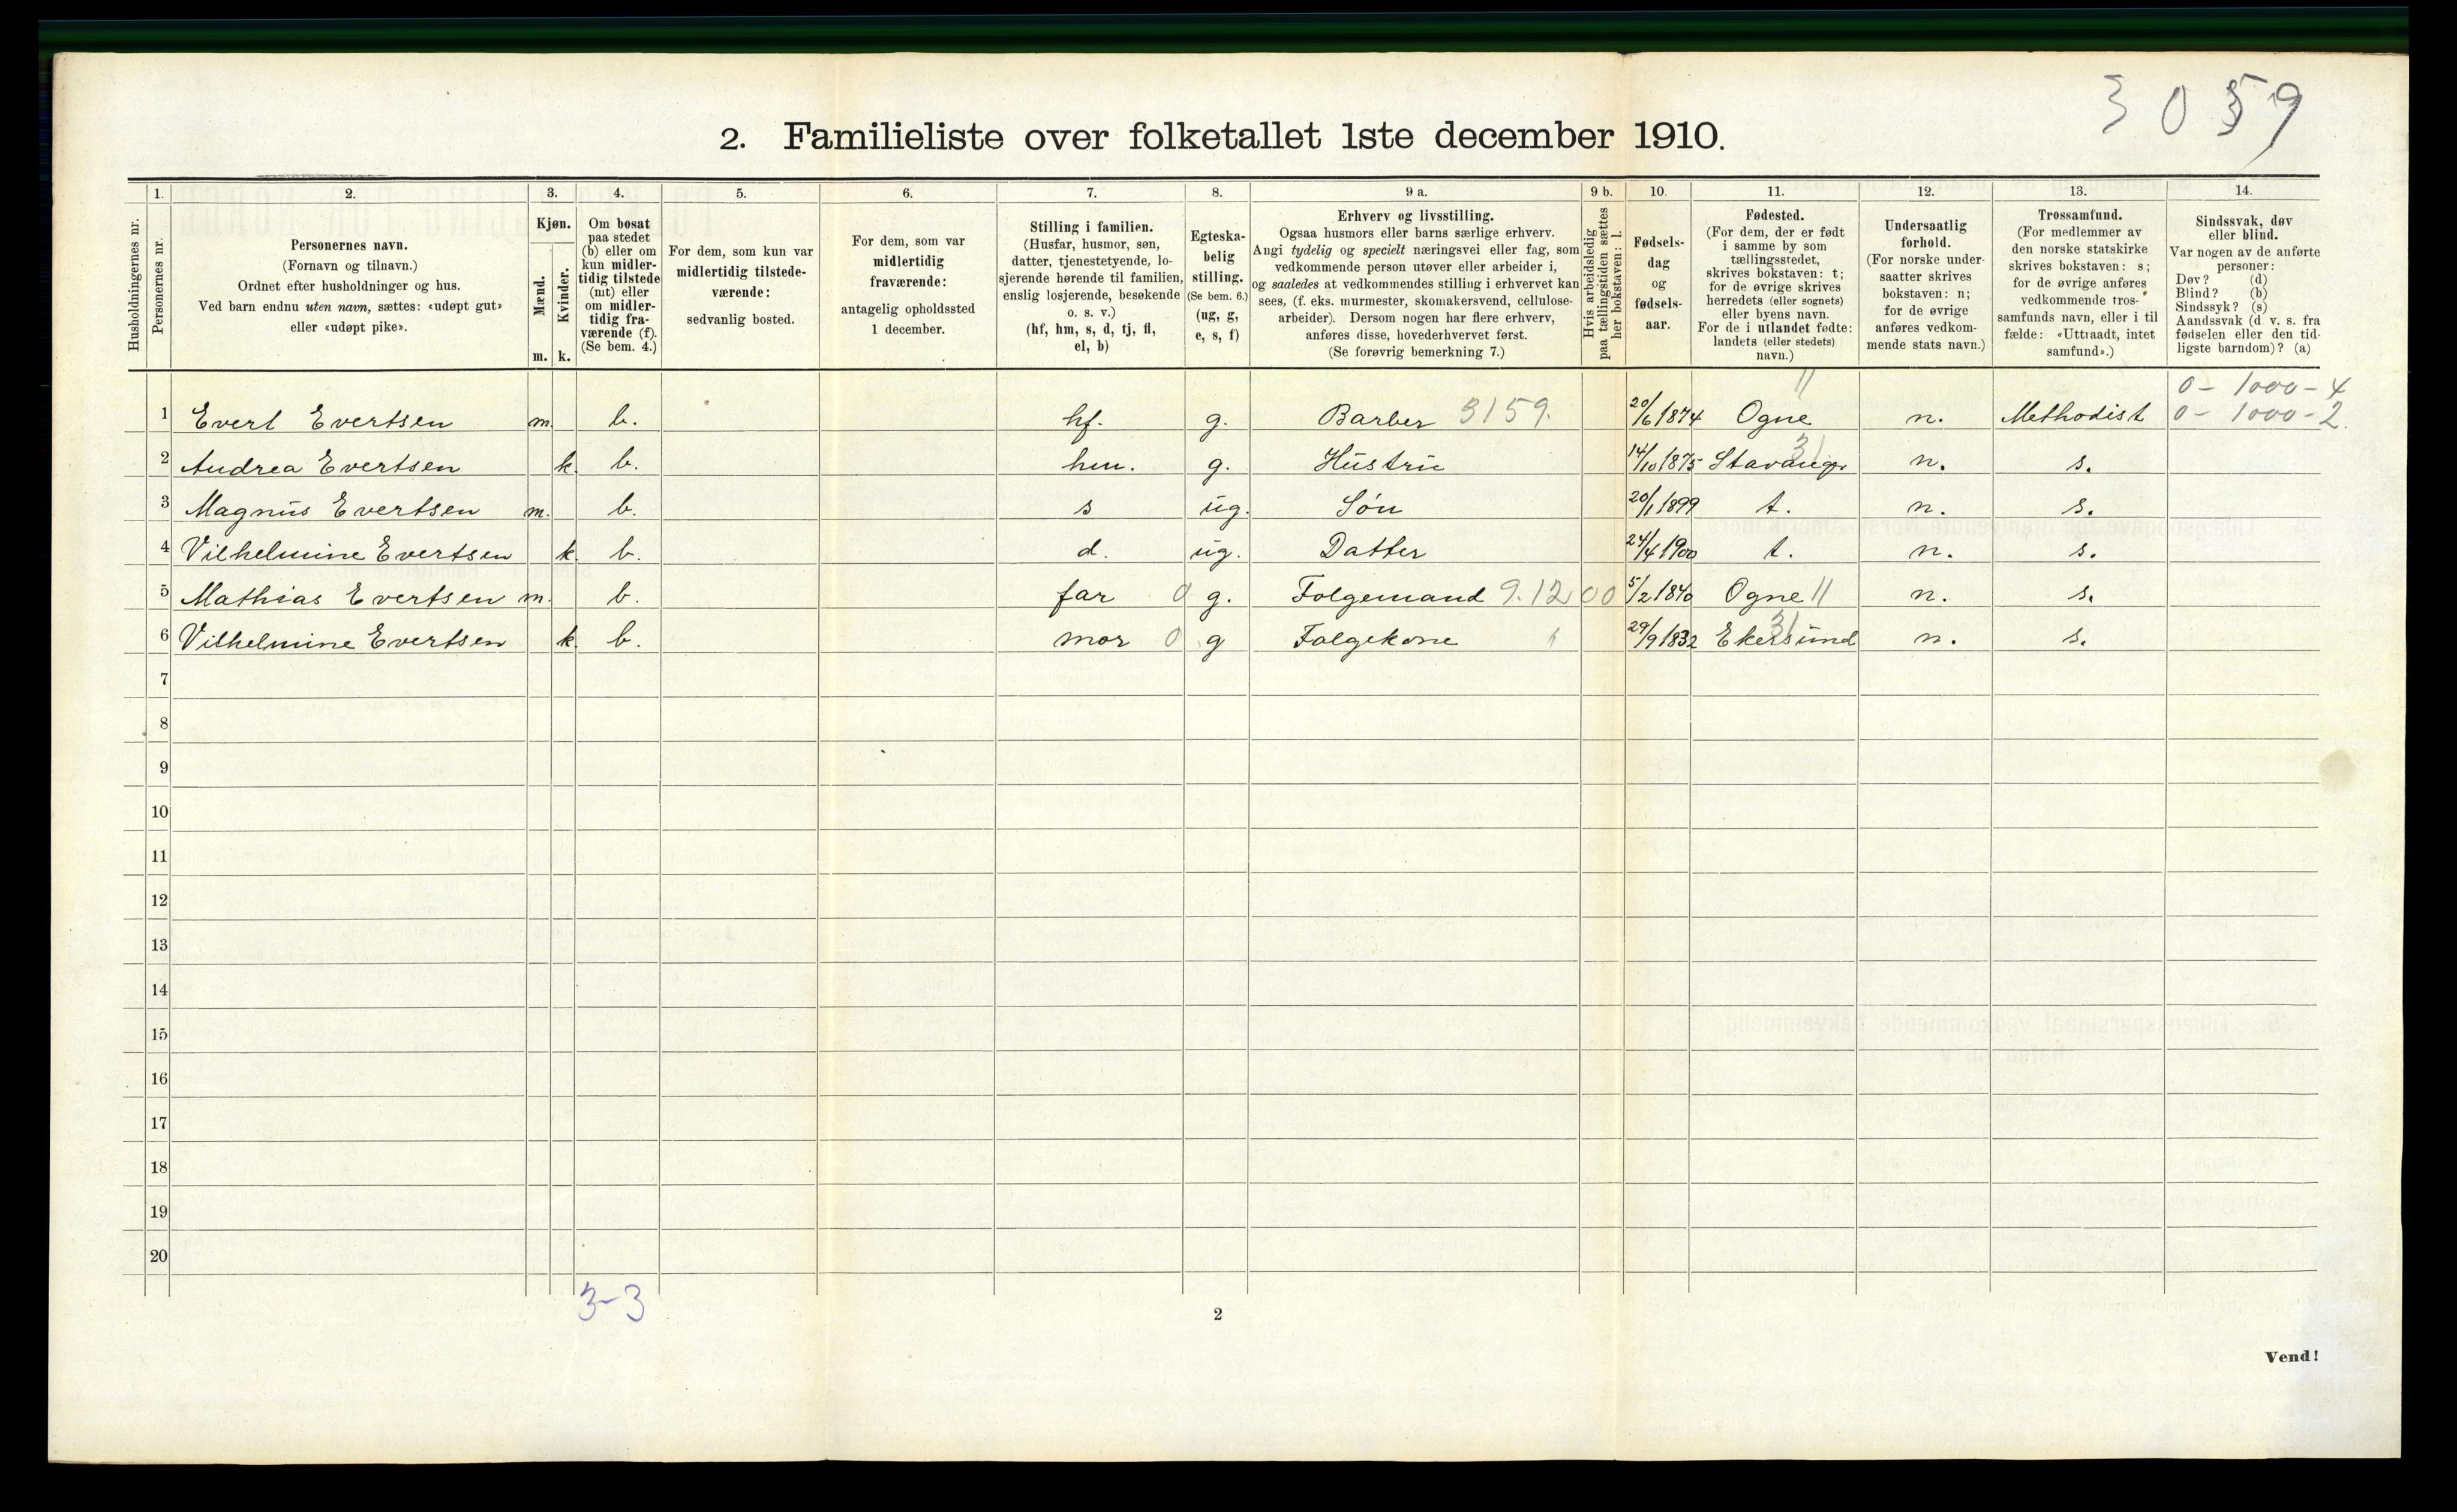 3059
2. Familieliste over folketallet 1ste december 1910.
1. 2. 3. 4. 5. 6. 7. 8. 9 a. 9 b. 10. 11. 12. 13. 14.
Husholdningernes nr.
Personernes nr.
Personernes navn.
(Fornavn og tilnavn.)
Ordnet efter husholdninger og hus.
Ved barn endnu uten navn, sættes: «udøpt gut»
eller «udøpt pike».
Kjøn.
Mænd.
Kvinder.
m. k.
Om bosat
paa stedet
(b) eller om
kun midler-
tidig tilstede
(mt) eller
om midler-
tidig fra-
værende (f).
(Se bem. 4.)
For dem, som kun var
midlertidig tilstede-
værende:
sedvanlig bosted.
For dem, som var
midlertidig
fraværende:
antagelig opholdssted
1 december.
Stilling i familien.
(Husfar, husmor, søn,
datter, tjenestetyende, lo-
sjerende hørende til familien,
enslig losjerende, besøkende
o. s. v.)
(hf, hm, s, d, tj, fl,
el, b)
Egteska-
belig
stilling.
(Se bem. 6.)
(ug, g,
e, s, f)
Erhverv og livsstilling.
Ogsaa husmors eller barns særlige erhverv.
Angi tydelig og specielt næringsvei eller fag, som
vedkommende person utøver eller arbeider i,
og saaledes at vedkommendes stilling i erhvervet kan
sees, (f. eks. murmester, skomakersvend, cellulose-
arbeider). Dersom nogen har flere erhverv,
anføres disse, hovederhvervet først.
(Se forøvrig bemerkning 7.)
Hvis arbeidsledig
paa tællingstiden sættes
her bokstaven: l.
Fødsels-
dag
og
fødsels-
aar.
Fødested.
(For dem, der er født
i samme by som
tællingsstedet,
skrives bokstaven: t;
for de øvrige skrives
herredets (eller sognets)
eller byens navn.
For de i utlandet fødte:
landets (eller stedets)
navn.)
Undersaatlig
forhold.
(For norske under-
saatter skrives
bokstaven: n;
for de øvrige
anføres vedkom-
mende stats navn.)
Trossamfund.
(For medlemmer av
den norske statskirke
skrives bokstaven: s;
for de øvrige anføres
vedkommende tros-
samfunds navn, eller i til
fælde: «Uttraadt, intet
samfund».)
Sindssvak, døv
eller blind.
Var nogen av de anførte
personer:
Døv? (d)
Blind? (b)
Sindssyk? (s)
Aandssvak (d. v. s. fra
fødselen eller den tid-
ligste barndom)? (a)
11 0 - 1000 - 4
1 Evert Evertsen m. b. hf. g. Barber 3159. 20/6 1874 Ogne n. Methodist 0 - 1000 - 2
2 Andrea Evertsen k. b. hm. g. Hüstrü 14/10 1875 Stavanger 31 n. s.
3 Magnüs Evertsen m. b. s üg. Søn 20/1 1899 t. n. s.
4 Vilhelmine Evertsen k. b. d. üg. Datter 24/4 1900 t. n. s.
5 Mathias Evertsen m. b. far 0 g. Folgemand 9.12 00 5/2 1840 Ogne 11 n. s.
6 Vilhelmine Evertsen k. b. mor 0 g Folgekone 29/9 1832 Ekersünd 31 n. s.
7
8
9
10
11
12
13
14
15
16
17
18
19
20
3-3
2
Vend!